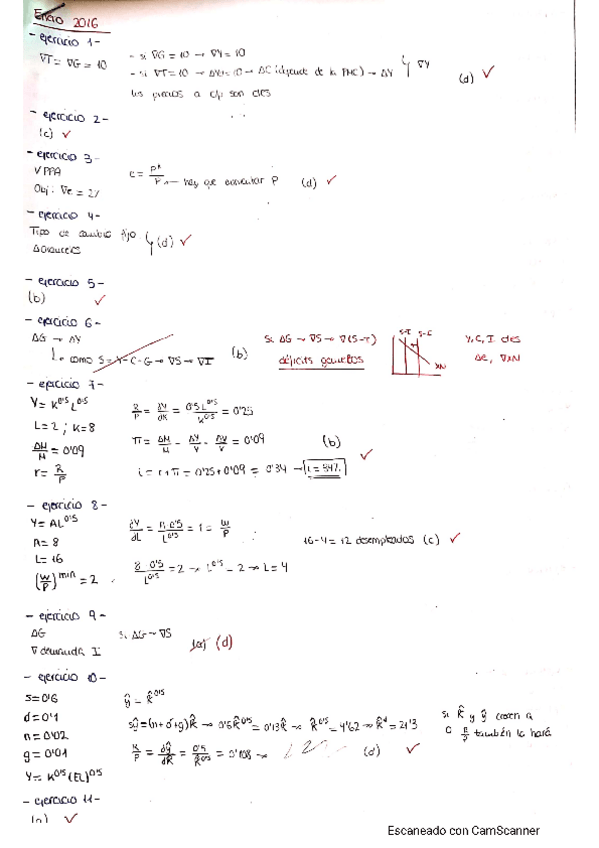 Enero 2016
- ejercicio 1-
∇T = ∇G = 10
- si ∇G = 10 → ∇Y = 10
- si ∇T = 10 → → ΔC (depende de la PMC) → ΔY } ∇Y
(d) ✓
los precios a c/p son ctes
- ejercicio 2-
(c) ✓
- ejercicio 3-
∇PPA
Obj: ∇e = 2%
hay que P (d) ✓
- ejercicio 4-
Tipo de cambio fijo
Δaranceles
(d) ✓
- ejercicio 5-
(b) ✓
- ejercicio 6-
ΔG → ΔY
como S = Y-C-G → ∇S → ∇I (b)
Si ΔG → ∇S → ∇(S-I)
déficits gemelos
S-I S-I
XN
Y, C, I ctes
Δe, ∇XN
- ejercicio 7-
Y = K^0'5 L^0'5
L = 2 ; K = 8
ΔM/M = 0'09
r = R/P
R/P = ∂Y/∂K = 0'5 L^0'5 / K^0'5 = 0'25
π = ΔM/M - ΔY/Y - ΔV/V = 0'09
(b) ✓
i = r + π = 0'25 + 0'09 = 0'34 → i = 34%
- ejercicio 8-
Y = AL^0'5
A = 8
L = 16
(W/P)^min = 2
∂Y/∂L = A·0'5 / L^0'5 = 1 = W/P
8·0'5 / L^0'5 = 2 → L^0'5 = 2 → L = 4
16-4 = 12 desempleados (c) ✓
- ejercicio 9-
ΔG
∇ demanda I
Si ΔG → ∇S
(d)
- ejercicio 10-
S = 0'6
d = 0'1
n = 0'02
g = 0'01
Y = K^0'5 (EL)^0'5
ŷ = K̂^0'5
sŷ = (n+d+g)K̂ → 0'6K̂^0'5 = 0'13K̂ → K̂^0'5 = 4'62 → K̂ = 21'3
R/P = ∂ŷ/∂K̂ = 0'5/K̂^0'5 = 0'108 →
(d) ✓
si K̂ y ŷ crecen a
0 R/P también lo hará
- ejercicio 11-
(a) ✓
Escaneado con CamScanner